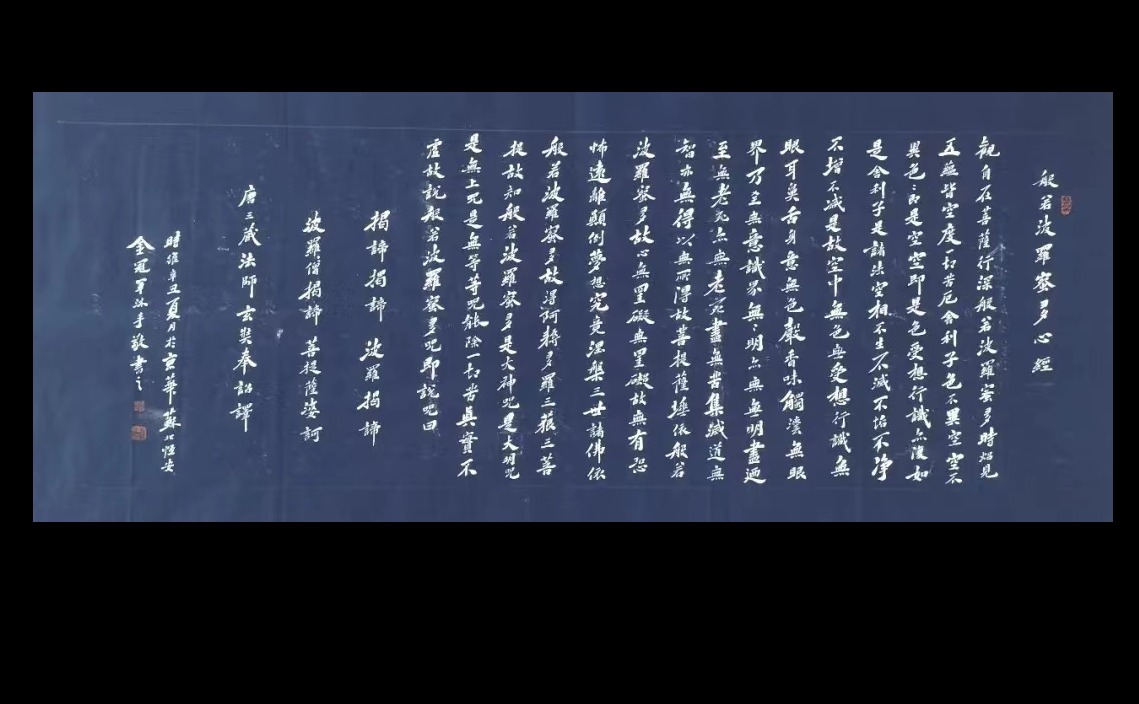 般若波羅蜜多心經
觀自在菩薩行深般若波羅蜜多時照見
五蘊皆空度一切苦厄舍利子色不異空空不
異色色即是空空即是色受想行識亦復如
是舍利子是諸法空相不生不滅不垢不淨
不增不減是故空中無色無受想行識無
眼耳鼻舌身意無色聲香味觸法無眼
界乃至無意識界無無明亦無無明盡乃
至無老死亦無老死盡無苦集滅道無
智亦無得以無所得故菩提薩埵依般若
波羅蜜多故心無罣礙無罣礙故無有恐
怖遠離顛倒夢想究竟涅槃三世諸佛依
般若波羅蜜多故得阿耨多羅三藐三菩
提故知般若波羅蜜多是大神咒是大明咒
是無上咒是無等等咒能除一切苦真實不
虛故說般若波羅蜜多咒即說咒曰
揭諦揭諦 波羅揭諦
波羅僧揭諦 菩提薩婆訶
唐三藏法師玄奘奉詔譯
時維辛丑夏月於京華 蘇北恒安
金冠軍沐手敬書之